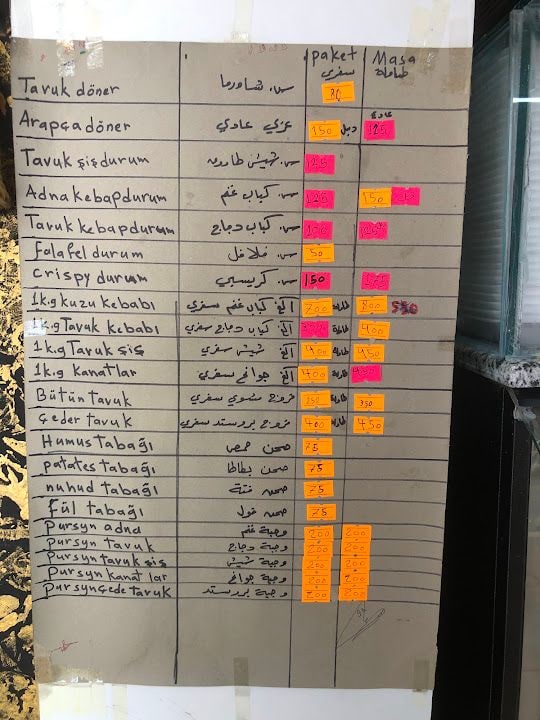 paket Masa
سفري طاولة
Tavuk döner س. شاورما 80
عادي
Arapça döner عربي عادي 150 دبل 125
Tavuk şiş durum س. شيش طاووق 125
Adna kebap durum س. كباب غنم 125 150
Tavuk kebap durum س. كباب دجاج 100
falafel durum س. فلافل 50
Crispy durum س. كريسبي 150
1k.g kuzu kebabı 1كغ كباب غنم سفري 700 طاولة 800
1k.g Tavuk kebabı 1كغ كباب دجاج سفري طاولة 400
1k.g Tavuk şiş 1كغ شيش سفري 400 طاولة 450
1k.g kanatlar 1كغ جوانح سفري 400 طاولة 450
Bütün tavuk فروج مشوي سفري 350 طاولة 350
çeder tavuk فروج بروستد سفري 400 طاولة 450
Humus tabağı صحن حمص 75
patates tabağı صحن بطاطا 75
nuhud tabağı صحن فتة 75
fül tabağı صحن فول 75
Pursyn adna وجبة غنم 200 200
Pursyn tavuk وجبة دجاج 200 200
Pursyn tavuk şiş وجبة شيش 200 200
Pursyn kanat lar وجبة جوانح 200 200
Pursyn çede tavuk وجبة بروستد 200 200